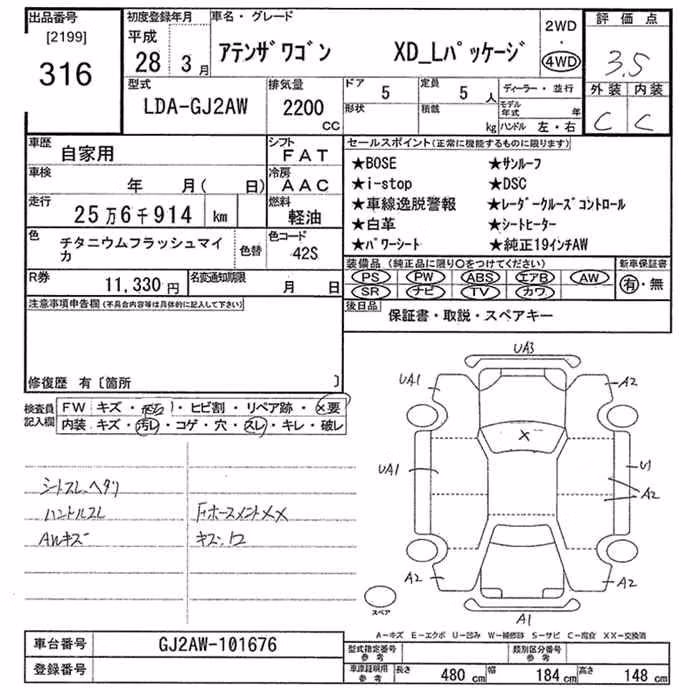 出品番号 初度登録年月 車名・グレード 2WD 評価点
[2199] 平成 ・
316 28 3月 アテンザワゴン XD_Lパッケージ 4WD 3.5
型式 排気量 ドア 5 定員 5人 ディーラー・並行 外装 内装
LDA-GJ2AW 2200 CC 形状 積載 kg モデル年式 年 C C
ハンドル 左・右
車歴 自家用 シフト FAT セールスポイント(正常に機能するものに限ります)
車検 年 月( 日) 冷房 AAC
走行 25万6千914 km 燃料 軽油
★BOSE ★サンルーフ
★i-stop ★DSC
★車線逸脱警報 ★レーダークルーズコントロール
★白革 ★シートヒーター
★パワーシート ★純正19インチAW
色 チタニウムフラッシュマイカ 色替 色コード 42S
装備品(純正品に限り○をつけてください) 新車保証書
PS PW ABS エアB AW 有・無
SR ナビ TV カワ
R券 11,330円 名変通知期限 月 日
後日品 保証書・取説・スペアキー
注意事項申告欄(不具合内容等は具体的に記入して下さい)
修復歴 有〔箇所 〕
検査員記入欄 FW キズ・ ・ヒビ割・リペア跡・×要
内装 キズ・汚レ・コゲ・穴・スレ・キレ・破レ
シートスレ、ヘタリ
ハンドルスレ
AWキズ
キズ、凹
UA3
UA1 A2
X
UA1 U1
A2
A2 A2
A1
スペア
A-キズ E-エクボ U-凹み W-補修跡 S-サビ C-腐食 XX-交換済
車台番号 GJ2AW-101676 型式指定番号参考 類別区分番号参考
登録番号 車庫証明用参考 長さ 480cm 幅 184cm 高さ 148cm